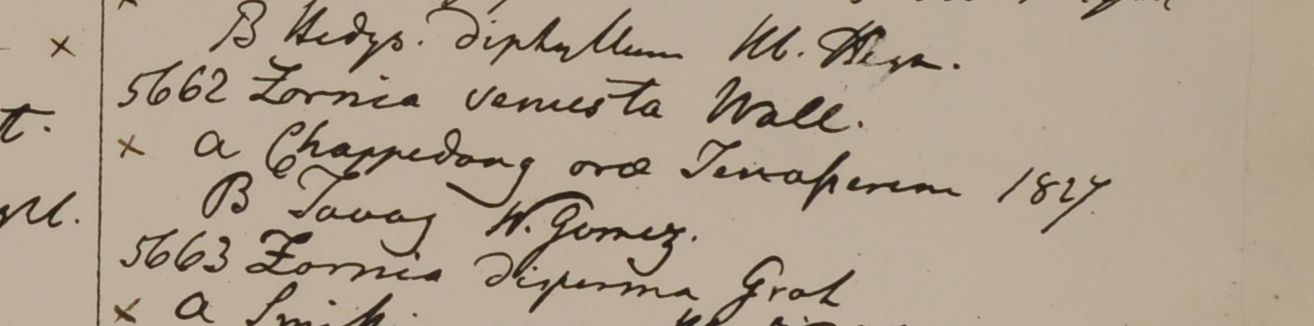 × B Hedys. diphyllum Hb. Heyn.
5662 Zornia venusta Wall.
t. × a Chappedong oræ Tenasserim 1827
B Tavoy W. Gomez.
5663 Zornia disperma Grah
× a Smith.